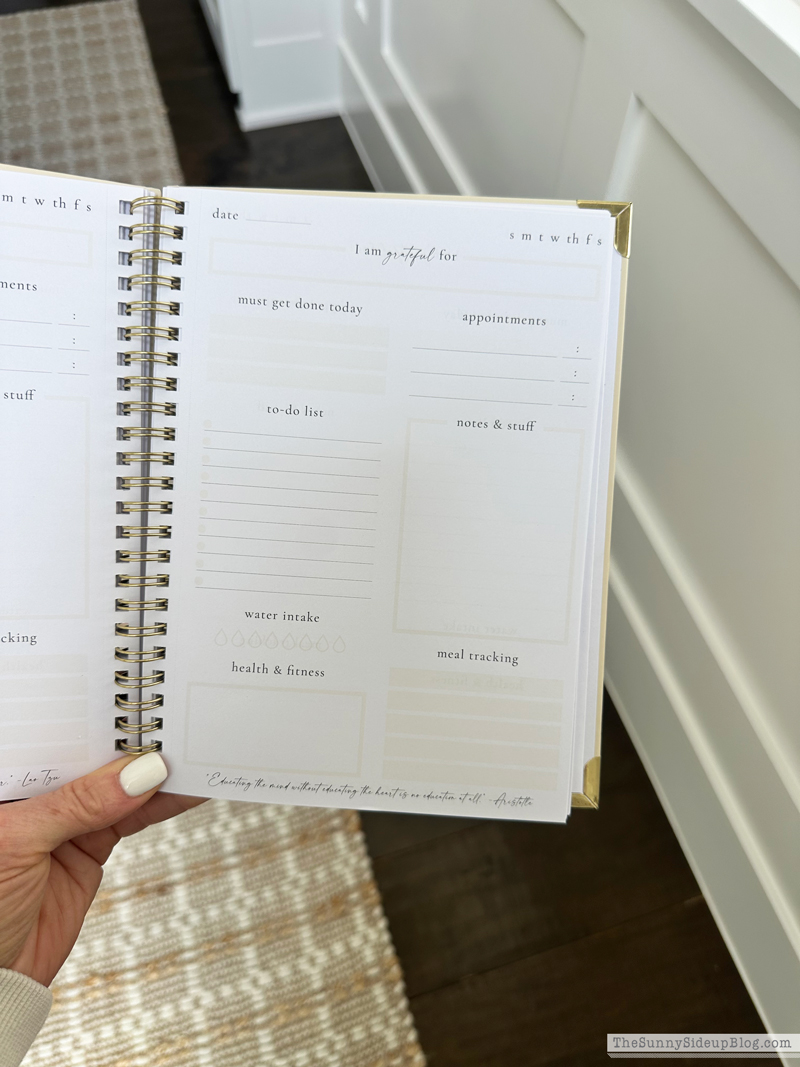 m t w th f s
ments
:
:
:
stuff
cking
" -Lao Tzu
date
s m t w th f s
I am grateful for
must get done today
appointments
:
:
:
to-do list
notes & stuff
water intake
meal tracking
health & fitness
"Educating the mind without educating the heart is no education at all." -Aristotle
TheSunnySideupBlog.com